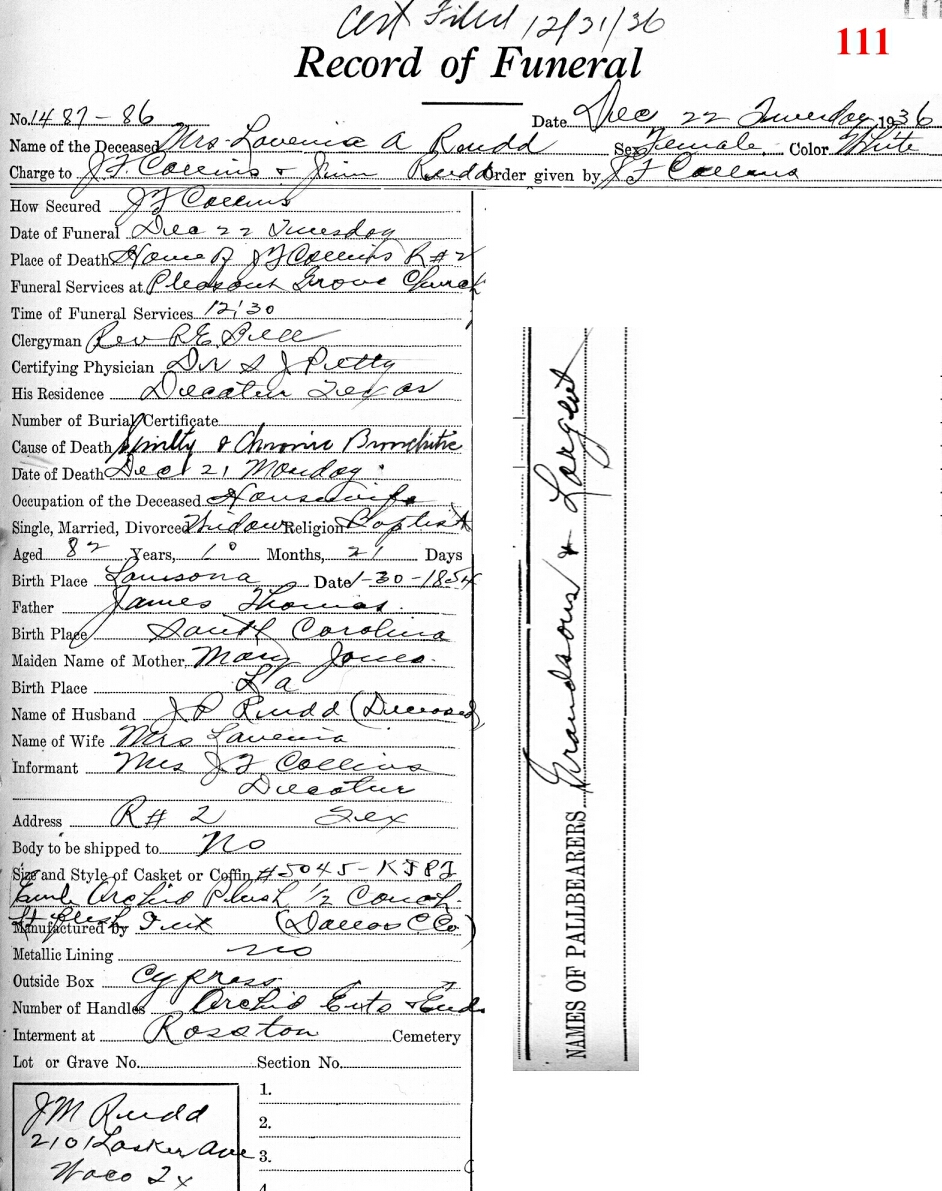 Cert Filed 12/21/36
111
Record of Funeral
No. 1487-86 Date Dec 22 Tuesday 1936
Name of the Deceased Mrs. Lavenia A Rudd Sex Female Color White
Charge to J.F. Collins & Jim Rudd Order given by J F Collins
How Secured J F Collins
Date of Funeral Dec 22 Tuesday
Place of Death Home of J F Collins R#2
Funeral Services at Pleasant Grove Church
Time of Funeral Services 12:30
Clergyman Rev R.E.
Certifying Physician Dr S J Petty
His Residence Decatur Texas
Number of Burial Certificate
Cause of Death & Chronic Bronchitis
Date of Death Dec 21 Monday
Occupation of the Deceased Housewife
Single, Married, Divorced Widow Religion Baptist
Aged 82 Years, 10 Months, 21 Days
Birth Place Date 1-30-1854
Father James Thomas
Birth Place South Carolina
Maiden Name of Mother Mary Jones
Birth Place La
Name of Husband J P Rudd (Deceased)
Name of Wife Mrs Lavenia
Informant Mrs J F Collins
Decatur
Address R# 2 Tex
Body to be shipped to No
Size and Style of Casket or Coffin #5045-
Orchid Plush 1/2 Couch
Manufactured by (Dallas C Co)
Metallic Lining no
Outside Box Cypress
Number of Handles Orchid & Ends
Interment at Rosston Cemetery
Lot or Grave No. Section No.
J M Rudd
2101 Lasker Ave
Waco Tx
1.
2.
3.
4.
NAMES OF PALLBEARERS Grandsons & Largent